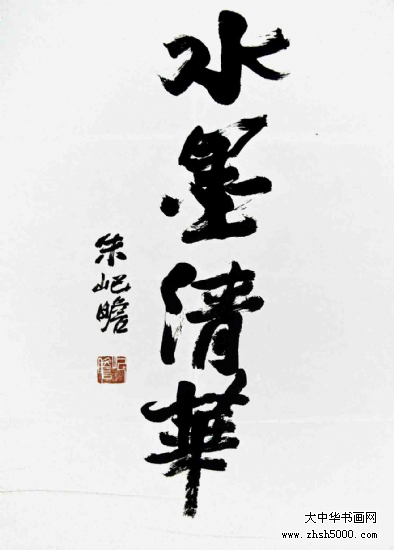 水墨清華
朱屺瞻
大中华书画网
www.zhsh5000.com